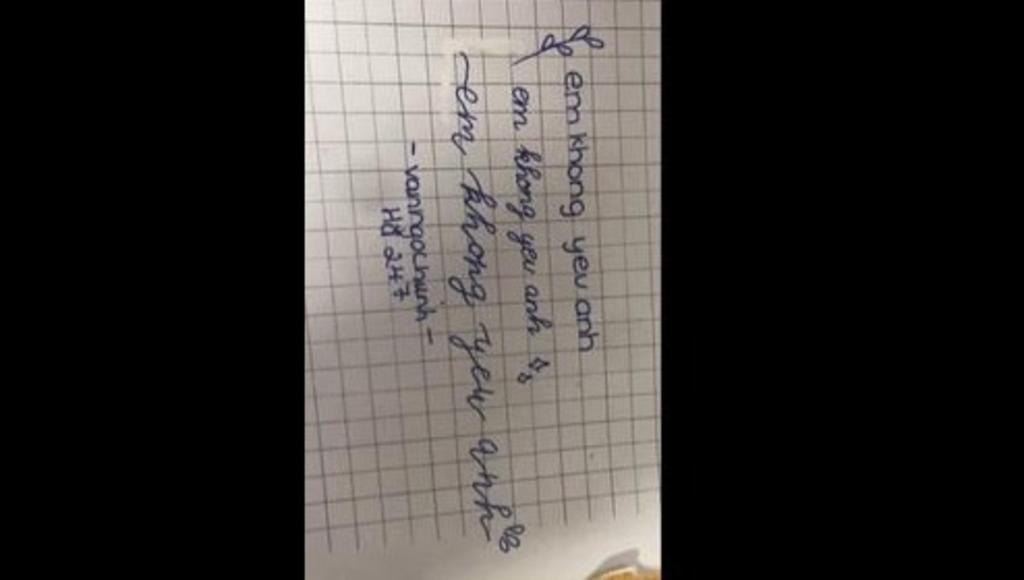 em khong yeu anh
em khong yeu anh
em khong yeu anh
- vanngocminh -
247